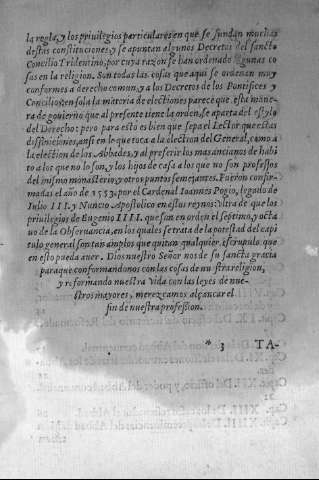 la regla, y los priuilegios particulares en que se fundan muchas
destas constituciones, y se apuntan algunos Decretos del sancto
Concilio Tridentino, por cuya razon se han ordenado algunas co
sas en la religion. Son todas las cosas que aqui se ordenan muy
conformes a derecho comun, y a los Decretos de los Pontifices y
Concilios: en sola la materia de electiones parece que esta mane
ra de gouierno que al presente tiene la orden, se aparta del estylo
del Derecho: pero para esto es bien que sepa el Lector que estas
diffiniciones, ansi en lo que toca a la election del General, como a
la election de los Abbades, y al preferir los mas ancianos de habi
to a los que no lo son, y los hijos de casa a los que no son professos
del mismo monasterio, y otros puntos semejantes. Fueron confir
madas el año de 1553. por el Cardenal Ioannes Pogio, legado de
Iulio III. y Nuncio Apostolico en estos reynos: Vltra de que los
priuilegios de Eugenio IIII. que son en orden el septimo, y octa
uo de la Obseruancia, en los quales se trata de la potestad del capi
tulo general son tan amplos que quitan qualquier escrupulo que
en esto pueda auer. Dios nuestro Señor nos de su sancta gracia
para que conformandonos con las cosas de nuestra religion,
y reformando nuestra vida con las leyes de nue-
stros mayores, merezcamos alcançar el
fin de nuestra profession.
* 3 TA-